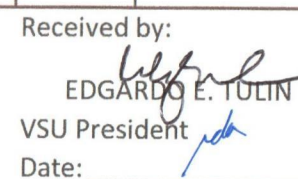 Received by:
EDGARDO E. TULIN
VSU President
Date: